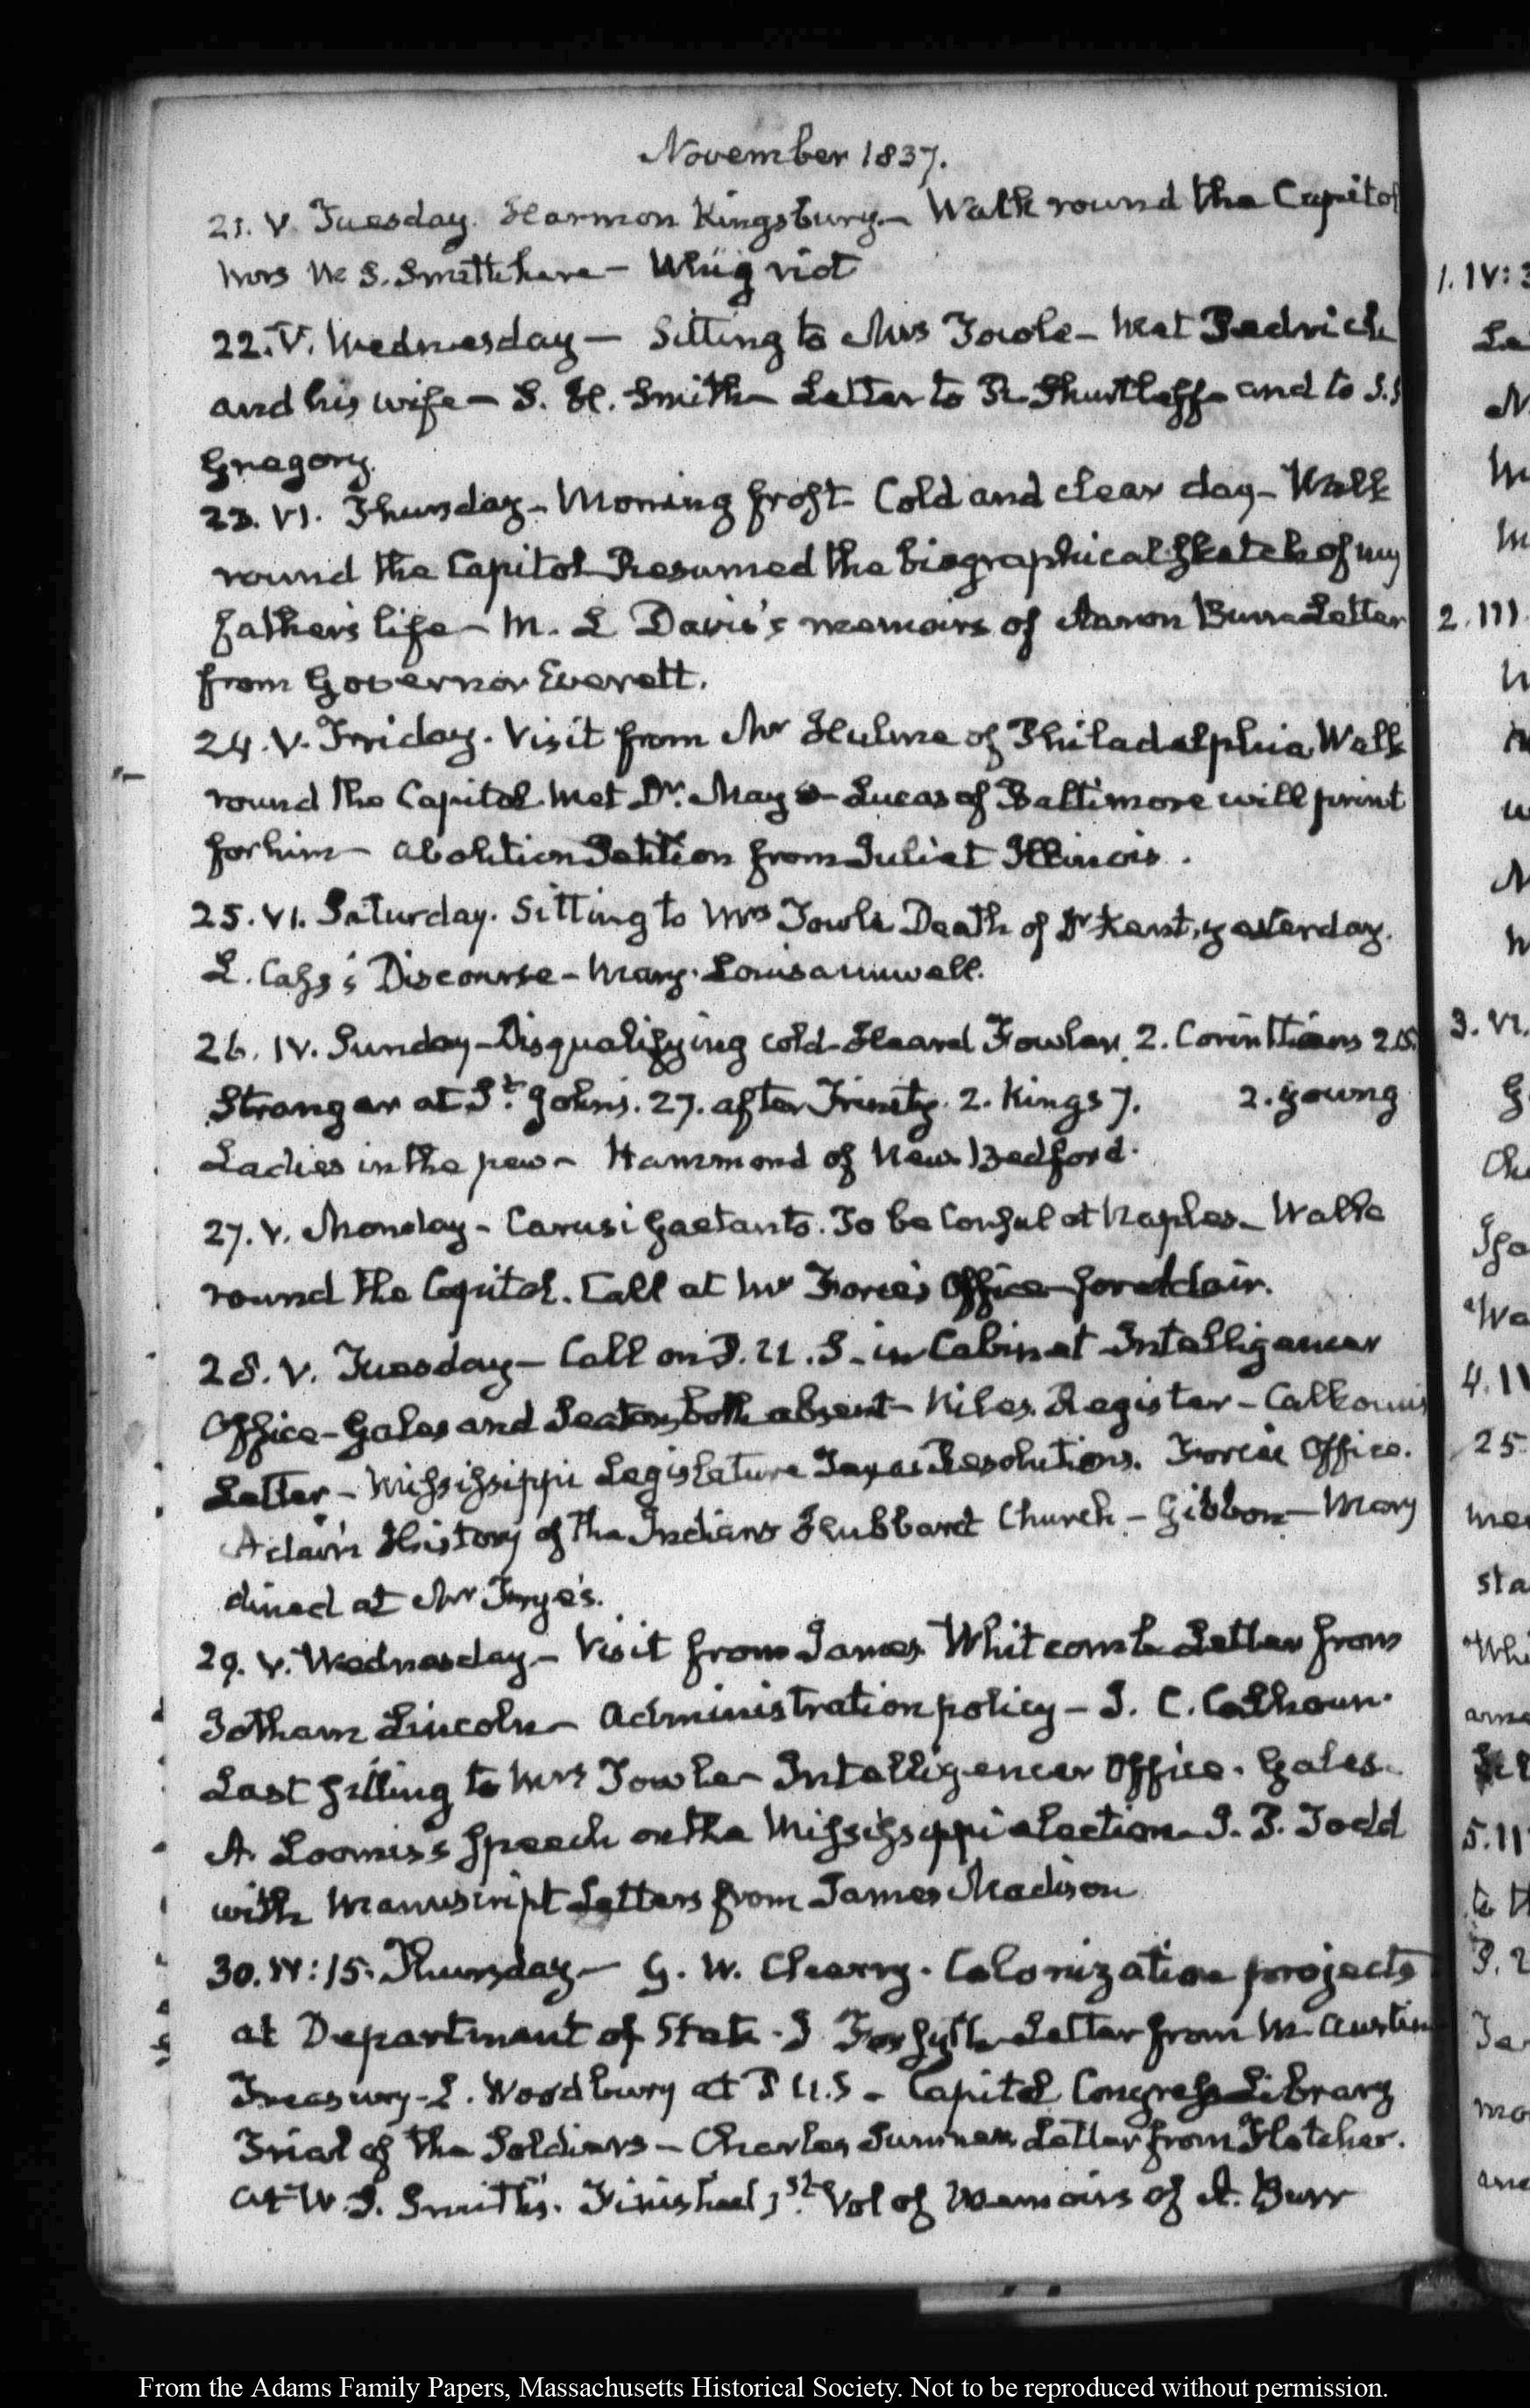 November 1837.
21. V. Tuesday. Harmon Kingsbury – Walk round the Capitol
Mrs W. S. Smith here – Whig riot
22. V. Wednesday – Sitting to Mrs Towle – Met Fedrick
and his wife – S. H. Smith – Letter to R. Shurtleff – and to S. S
Gregory.
23. VI. Thursday – Morning frost. Cold and clear day – Walk
round the Capitol Resumed the biographical Sketch of my
father's life – M. L Davis's memoirs of Aaron Burr – Letter
from Governor Everett.
24. V. Friday. Visit from Mr Hulme of Philadelphia Walk
round the Capitol. Met Dr. May – Lucas of Baltimore will print
for him – Abolition Petition from Juliet Illinois.
25. VI. Saturday. Sitting to Mrs Towle Death of Dr Kent, yesterday.
L. Cass's Discourse – Mary. Louisa unwell.
26. IV. Sunday – Disqualifying cold – Heard Fowler. 2. Corinthians
Stranger at St. John's. 27. after Trinity. 2. Kings 7. 2. young
Ladies in the pew – Hammond of New Bedford.
27. V. Monday – Carusi Gaetano. To be Consul at Naples – Walk
round the Capitol. Call at Mr Force's Office for Adair.
28. V. Tuesday – Call on P. U. S. – in Cabinet – Intelligencer
Office – Gales and Seaton, both absent – Niles Register – Calhoun's
Letter – Mississippi Legislature Texas Resolutions. Force's Office.
Adair's History of the Indians Hubbard Church – Gibbon – Mary
dined at Mr Frye's.
29. V. Wednesday – Visit from James Whitcomb – Letter from
Jotham Lincoln – Administration policy – J. C. Calhoun.
Last sitting to Mrs Towle – Intelligencer Office. Gales.
A. Loomis's Speech on the Mississippi election – J. P. Todd
with Manuscript Letters from James Madison
30. IV: 15. Thursday – G. W. Cherry. Colonization projects
at Department of State. J Forsyth – Letter from W. Austin
Treasury – L. Woodbury at P U. S – Capitol Congress Library
Trial of the Soldiers – Charles Sumner Letter from Fletcher.
at W. S. Smith's. Finished 1st. Vol of Memoirs of A. Burr
From the Adams Family Papers, Massachusetts Historical Society. Not to be reproduced without permission.